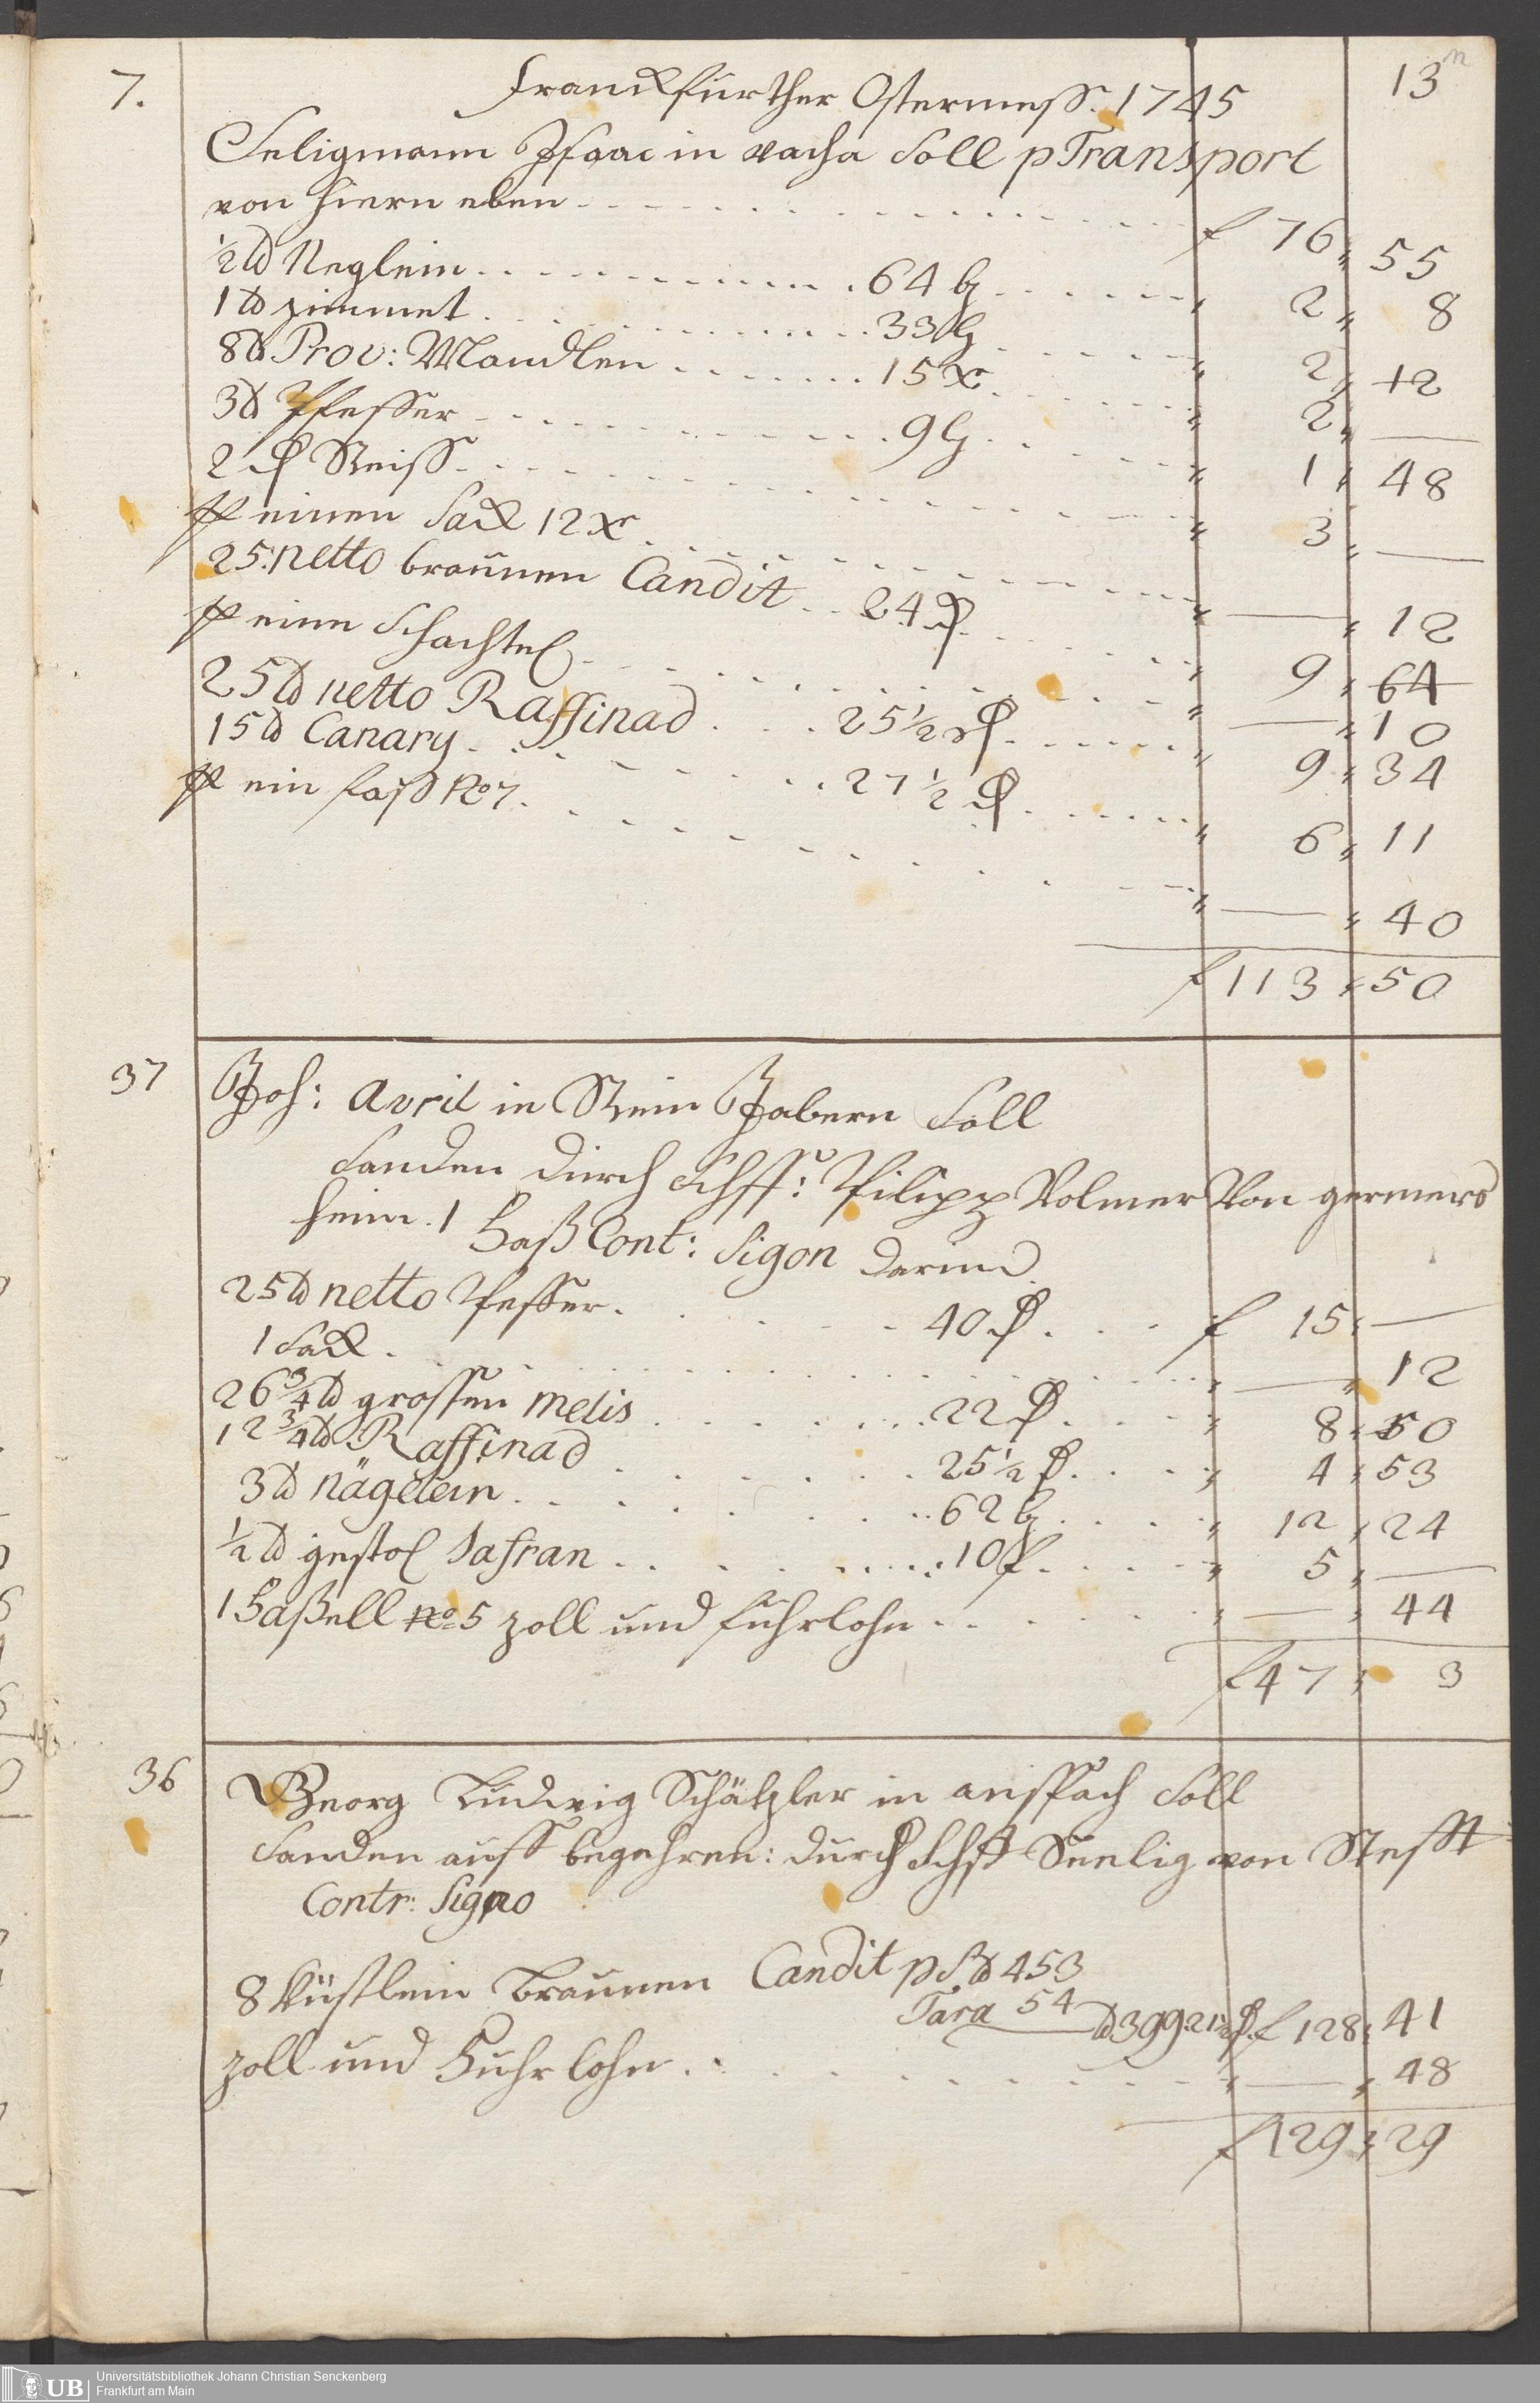 13
7. Franckfurther Ostermess. 1745
Seligmann Isaac in Vacha Soll p Transport
von hierneben f 76 55
½ ℔ Neglein 64 bz 2 8
1 ℔ Zimmet 33 bz 2 12
8 ℔ Prov: Mandlen 15 xr 2 —
3 ℔ Pfeffer 9 bz 1 48
2 Reiss 3 —
einen Sack 12 xr — 12
25: netto braunen Candit 24 9 64
eine Schachtel — 10
25 ℔ netto Raffinad 25½ 9 34
15 ℔ Canary 27½ 6 11
ein fass No 7 — 40
f 113 50
37 Joh: Avril in Rein Zabern Soll
Sanden durch Schff: Philipp Volmer Von germers
heim. 1 Fass Cont: Sigon darin
25 ℔ netto Pfeffer 40 f 15 —
1 Sack — 12
26¾ ℔ grossen Melis 22 8 50
12¾ ℔ Raffinad 25½ 4 53
3 ℔ nägelein 62 bz 12 24
½ ℔ gestos Safran 10 f 5 —
1 Fassell No 5 zoll und fuhrlohn — 44
f 47 3
36 Georg Ludwig Schätzler in anspach Soll
Sanden auff begehren: durch Schff Seelig von Stefft
Contr: Signo
8 Küstlein Braunen Candit p Sp ℔ 453
Tara 54 ℔ 399 21½ f 128 41
zoll und Fuhrlohn — 48
f 129 29
UB Universitätsbibliothek Johann Christian Senckenberg
Frankfurt am Main